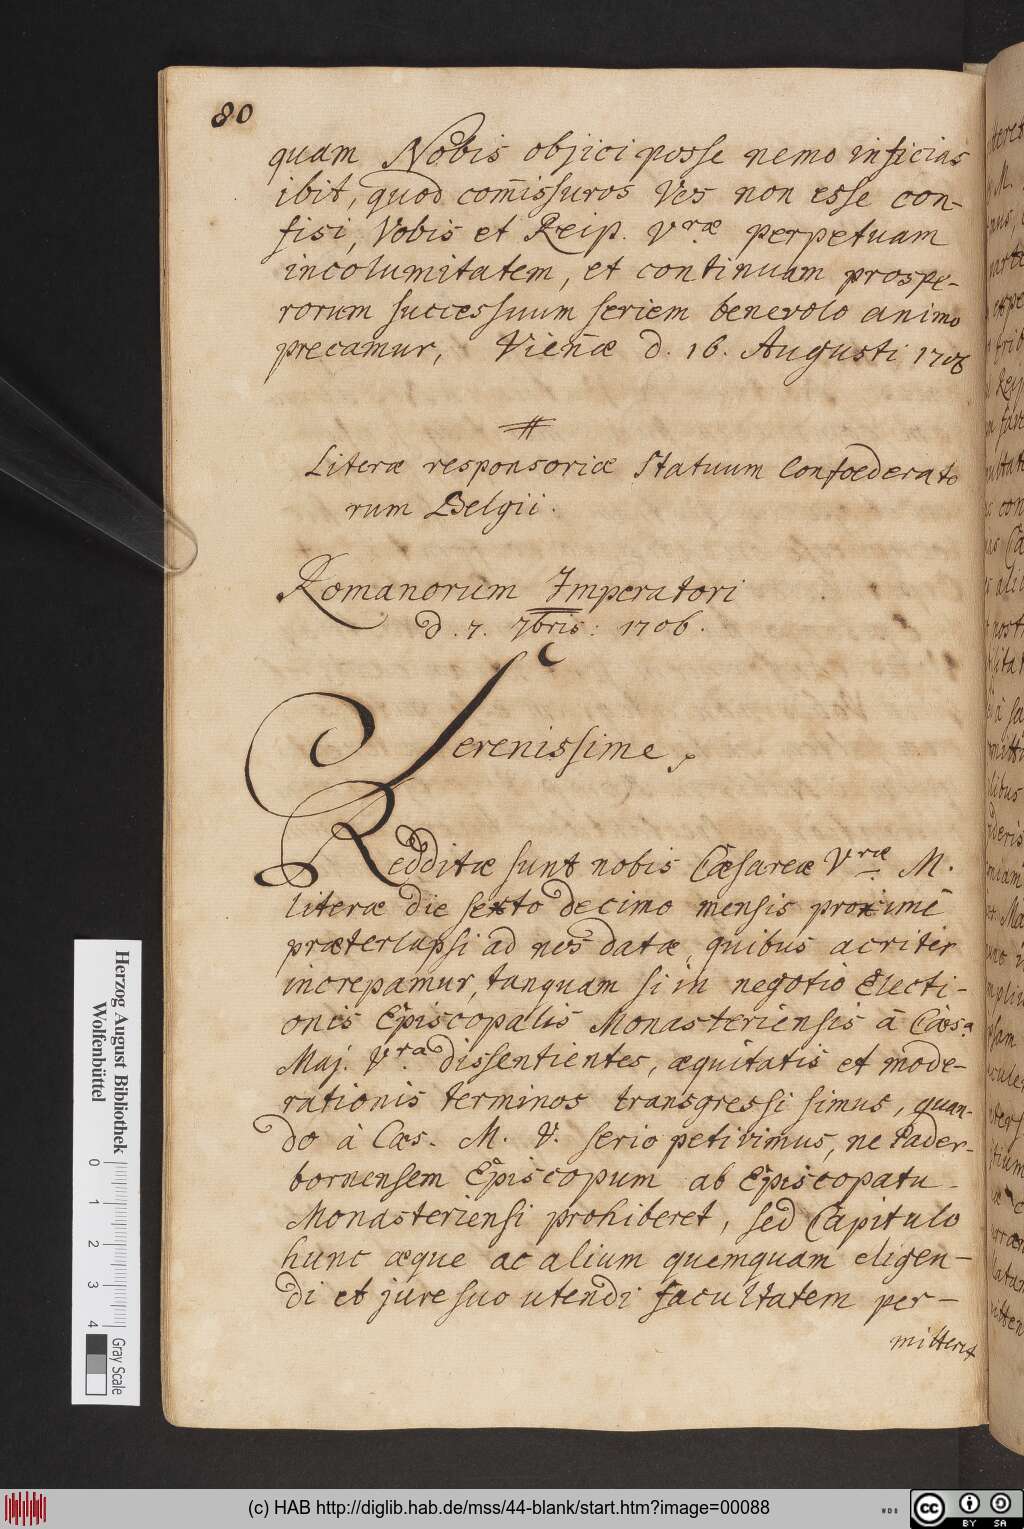 80
quam Nobis objici posse nemo inficias
ibit, quod com̄issuros Vos non esse con-
fisi, Vobis et Reip. Vræ perpetuam
incolumitatem, et continuam prospe-
rorum successuum seriem benevolo animo
precamur, Vien̄æ d. 16. Augusti 1706
Literæ responsoriæ Statuum Confoederato
rum Belgii.
Romanorum Imperatori
d. 7. 7bris: 1706.
Serenissime,
Redditæ sunt nobis Cæsareæ Vræ M.
literæ die sexto decimo mensis proximè
præterlapsi ad nos datæ, quibus acriter
increpamur, tanquam si in negotio Electi-
onis Episcopalis Monasteriensis à Cæs.a
Maj. Vra dissentientes, æquitatis et mode-
rationis terminos transgressi simus, quan-
do à Cæs. M. V. serio petivimus, ne Pader-
bornensem Episcopum ab Episcopatu
Monasteriensi prohiberet, sed Capitulo
hunc æque ac alium quemquam eligen-
di et jure suo utendi facultatem per-
mitteret
Herzog August Bibliothek
Wolfenbüttel
0 1 2 3 4
Gray Scale
(c) HAB http://diglib.hab.de/mss/44-blank/start.htm?image=00088
WDB
cc BY SA